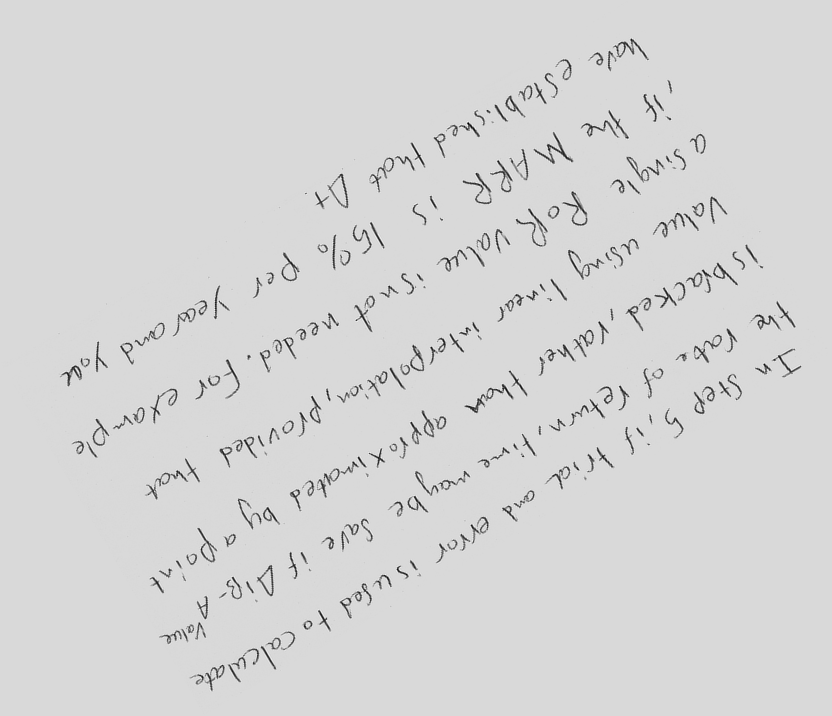 In step 5, if trial and error is used to calculate
the rate of return, time may be save if Δi B-A Value
is bracked, rather than approximated by a point
Value using linear interpolation, provided that
a single RoR value is not needed. For example
, if the MARR is 15% per year and you
have established that Δt